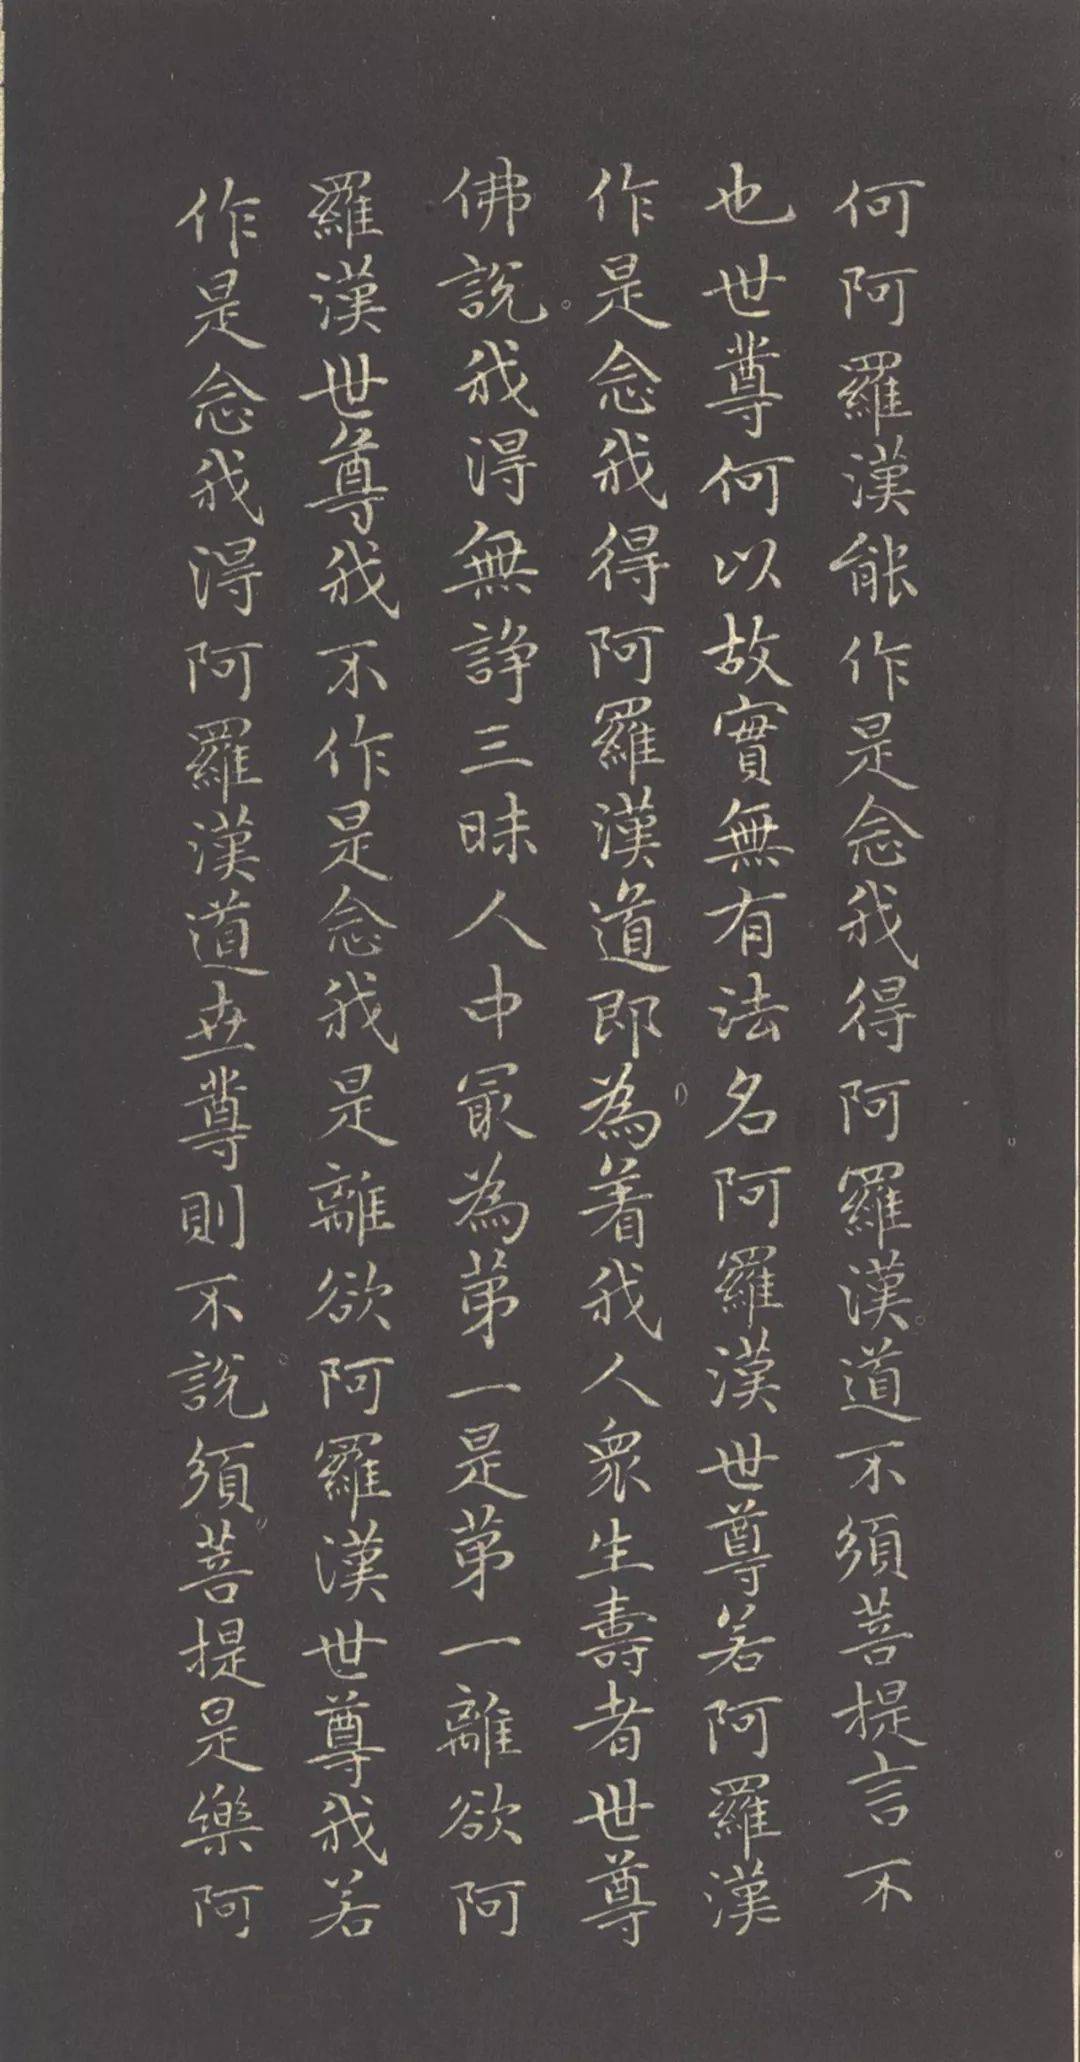 何阿羅漢能作是念我得阿羅漢道不須菩提言不
也世尊何以故實無有法名阿羅漢世尊若阿羅漢
作是念我得阿羅漢道即為著我人衆生壽者世尊
佛說我得無諍三昧人中冣為第一是第一離欲阿
羅漢世尊我不作是念我是離欲阿羅漢世尊我若
作是念我得阿羅漢道世尊則不說須菩提是樂阿